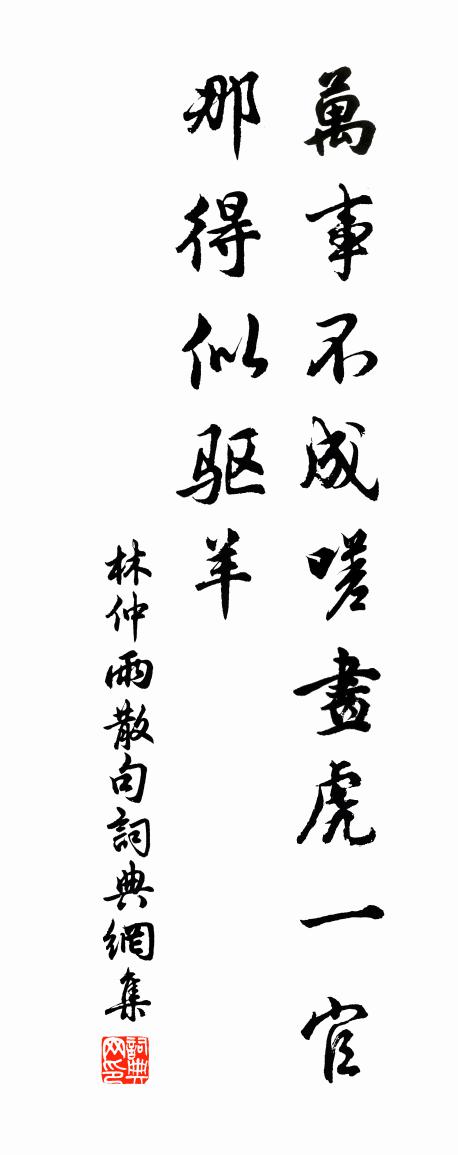 萬事不成嗟畫虎一官
那得似驱羊
林仲雨散句詞典網集
詞典网印